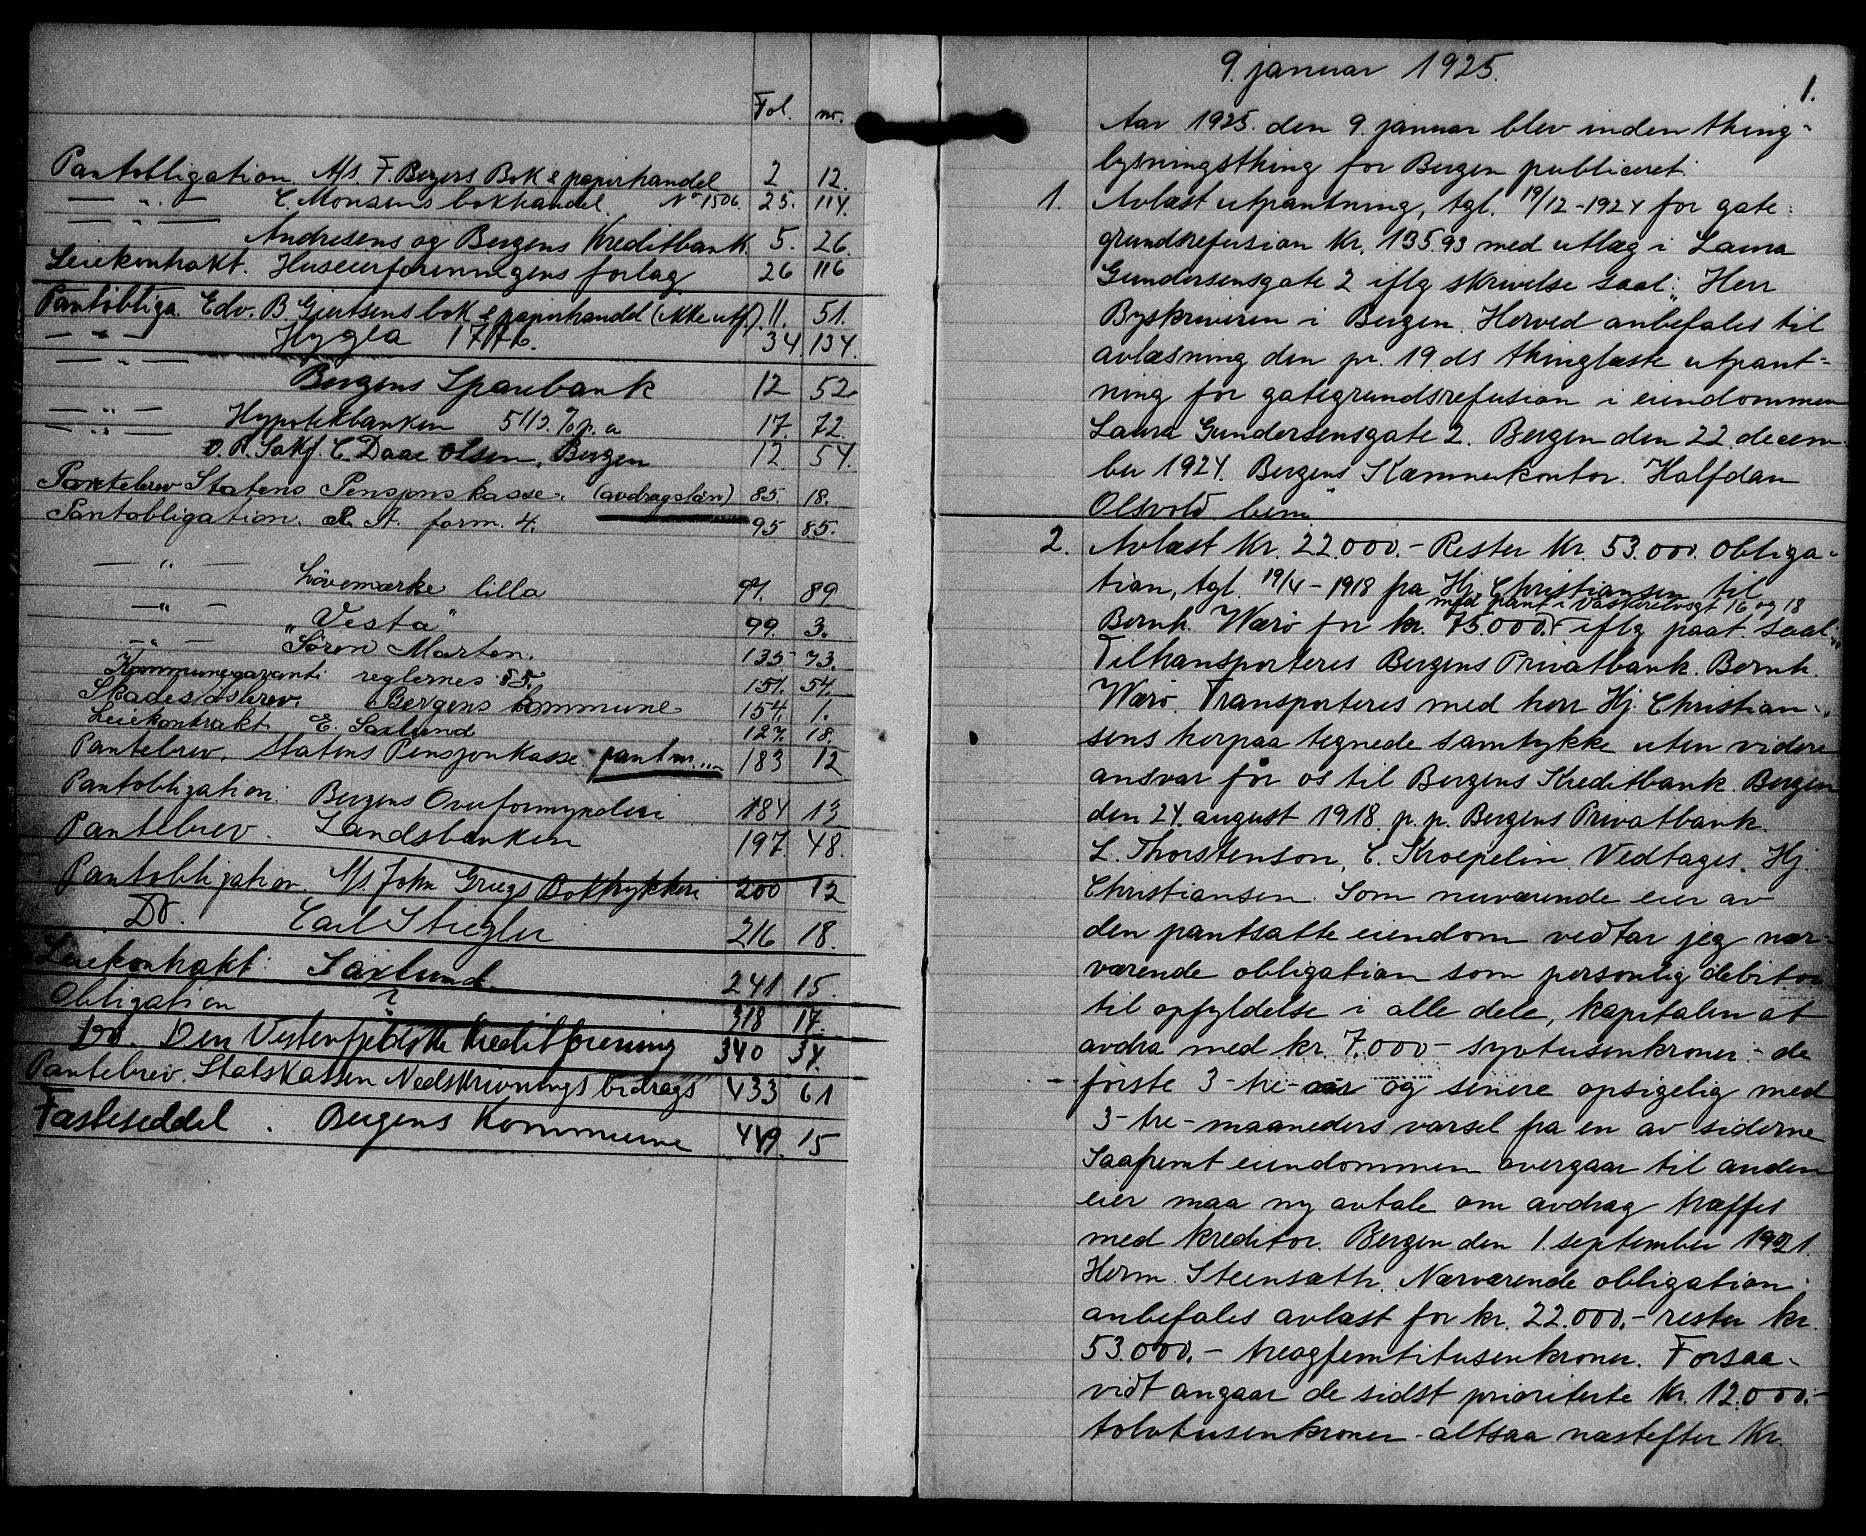 Fol. nr.
Pantobligation A/s. F. Beyers Bok & papirhandel 2 12.
— " — C. Monsens bokhandel. No 1506. 25. 114.
— " — Andresens og Bergens Kreditbank. 5. 26.
Leiekontrakt. Huseierforeningens forlag 26 116
Pantobliga. Edv. B. Giertsens bok & papirhandel (ikke utf.) 11. 51.
— " — Hygea 1776. 34 134.
— " — Bergens Sparebank 12 52
— " — Hypotekbanken 5 1/2 % p.a 17. 72.
— " — O. R. Sakf. C. Daae Olsen, Bergen 12. 54.
Pantebrev Statens Pensjonskasse. (avdragslån) 85. 18.
Pantobligation. R. A. form. 4. 95 85.
— " — Lövemærke lilla 97. 89.
— " — "Vesta" 99. 3.
— " — Sören Marten. 135 73.
Kommunegaranti reglernes § 5. 151. 54.
Skadesløsbrev. Bergens kommune 154. 1.
Leiekontrakt. E. Saxlund 127. 18.
Pantebrev. Statens Pensjonkasse. 183 12
Pantobligation. Bergens Overformynderi 184 13
Pantebrev. Landsbanken 197. 48.
Pantobligation. A/s. John Griegs Boktrykkeri 200 12
Do. Carl Stiegler 216 18.
Leiekontrakt. Saxlund. 241 15.
Obligation ? 318 17.
Do. Den Vestenfjeldske Kreditforening 340 34.
Pantebrev. Statskassen Nedskrivnings bidrags 433 61
Fæsteseddel. Bergens Kommune 449. 15
9. januar 1925.
1.
Aar 1925. den 9. januar blev inden thing-
lysningsthing for Bergen publiceret:
1. Avlæst utpantning, tgl. 19/12-1924 for gate-
grundsrefusion kr. 135.93 med utlæg i Laura
Gundersensgate 2 iflg skrivelse saal: "Herr
Byskriveren i Bergen. Herved anbefales til
avlæsning den pr. 19 ds thinglæste utpant-
ning for gategrundsrefusion i eiendommen
Laura Gundersensgate 2. Bergen den 22 decem-
ber 1924. Bergens Kæmnerkontor. Halfdan
Olsvold bem"
2. Avlæst kr. 22000.- Rester kr. 53.000. obliga-
tion, tgl. 19/4-1918 fra Hj. Christiansen til
med pant i Vaskerelvsgt 16 og 18
Bernh. Wærö for kr. 75.000.- iflg paat. saal:
"Tiltransporteres Bergens Privatbank. Bernh.
Wærö. Transporteres med herr Hj. Christian-
sens herpaa tegnede samtykke uten videre
ansvar for os til Bergens Kreditbank. Bergen
den 24. august 1918. p. p. Bergens Privatbank.
L. Thorstenson, C. Kroepelin. Vedtages. Hj.
Christiansen. Som nuværende eier av
den pantsatte eiendom vedtar jeg nær-
værende obligation som personlig debitor
til opfyldelse i alle dele, kapitalen at
avdra med kr. 7.000 - syvtusenkroner - de
förste 3 - tre - aar og senere opsigelig med
3 - tre - maaneders varsel fra en av siderne
Saafremt eiendommen overgaar til anden
eier maa ny avtale om avdrag træffes
med kreditor. Bergen den 1. september 1921.
Herm. Steensæth. Nærværende obligation
anbefales avlæst for kr. 22.000.- rester kr.
53.000.- treogfemtitusenkroner. Forsaa-
vidt angaar de sidst prioriterte kr. 12.000.-
tolvtusenkroner - altsaa næstefter kr.